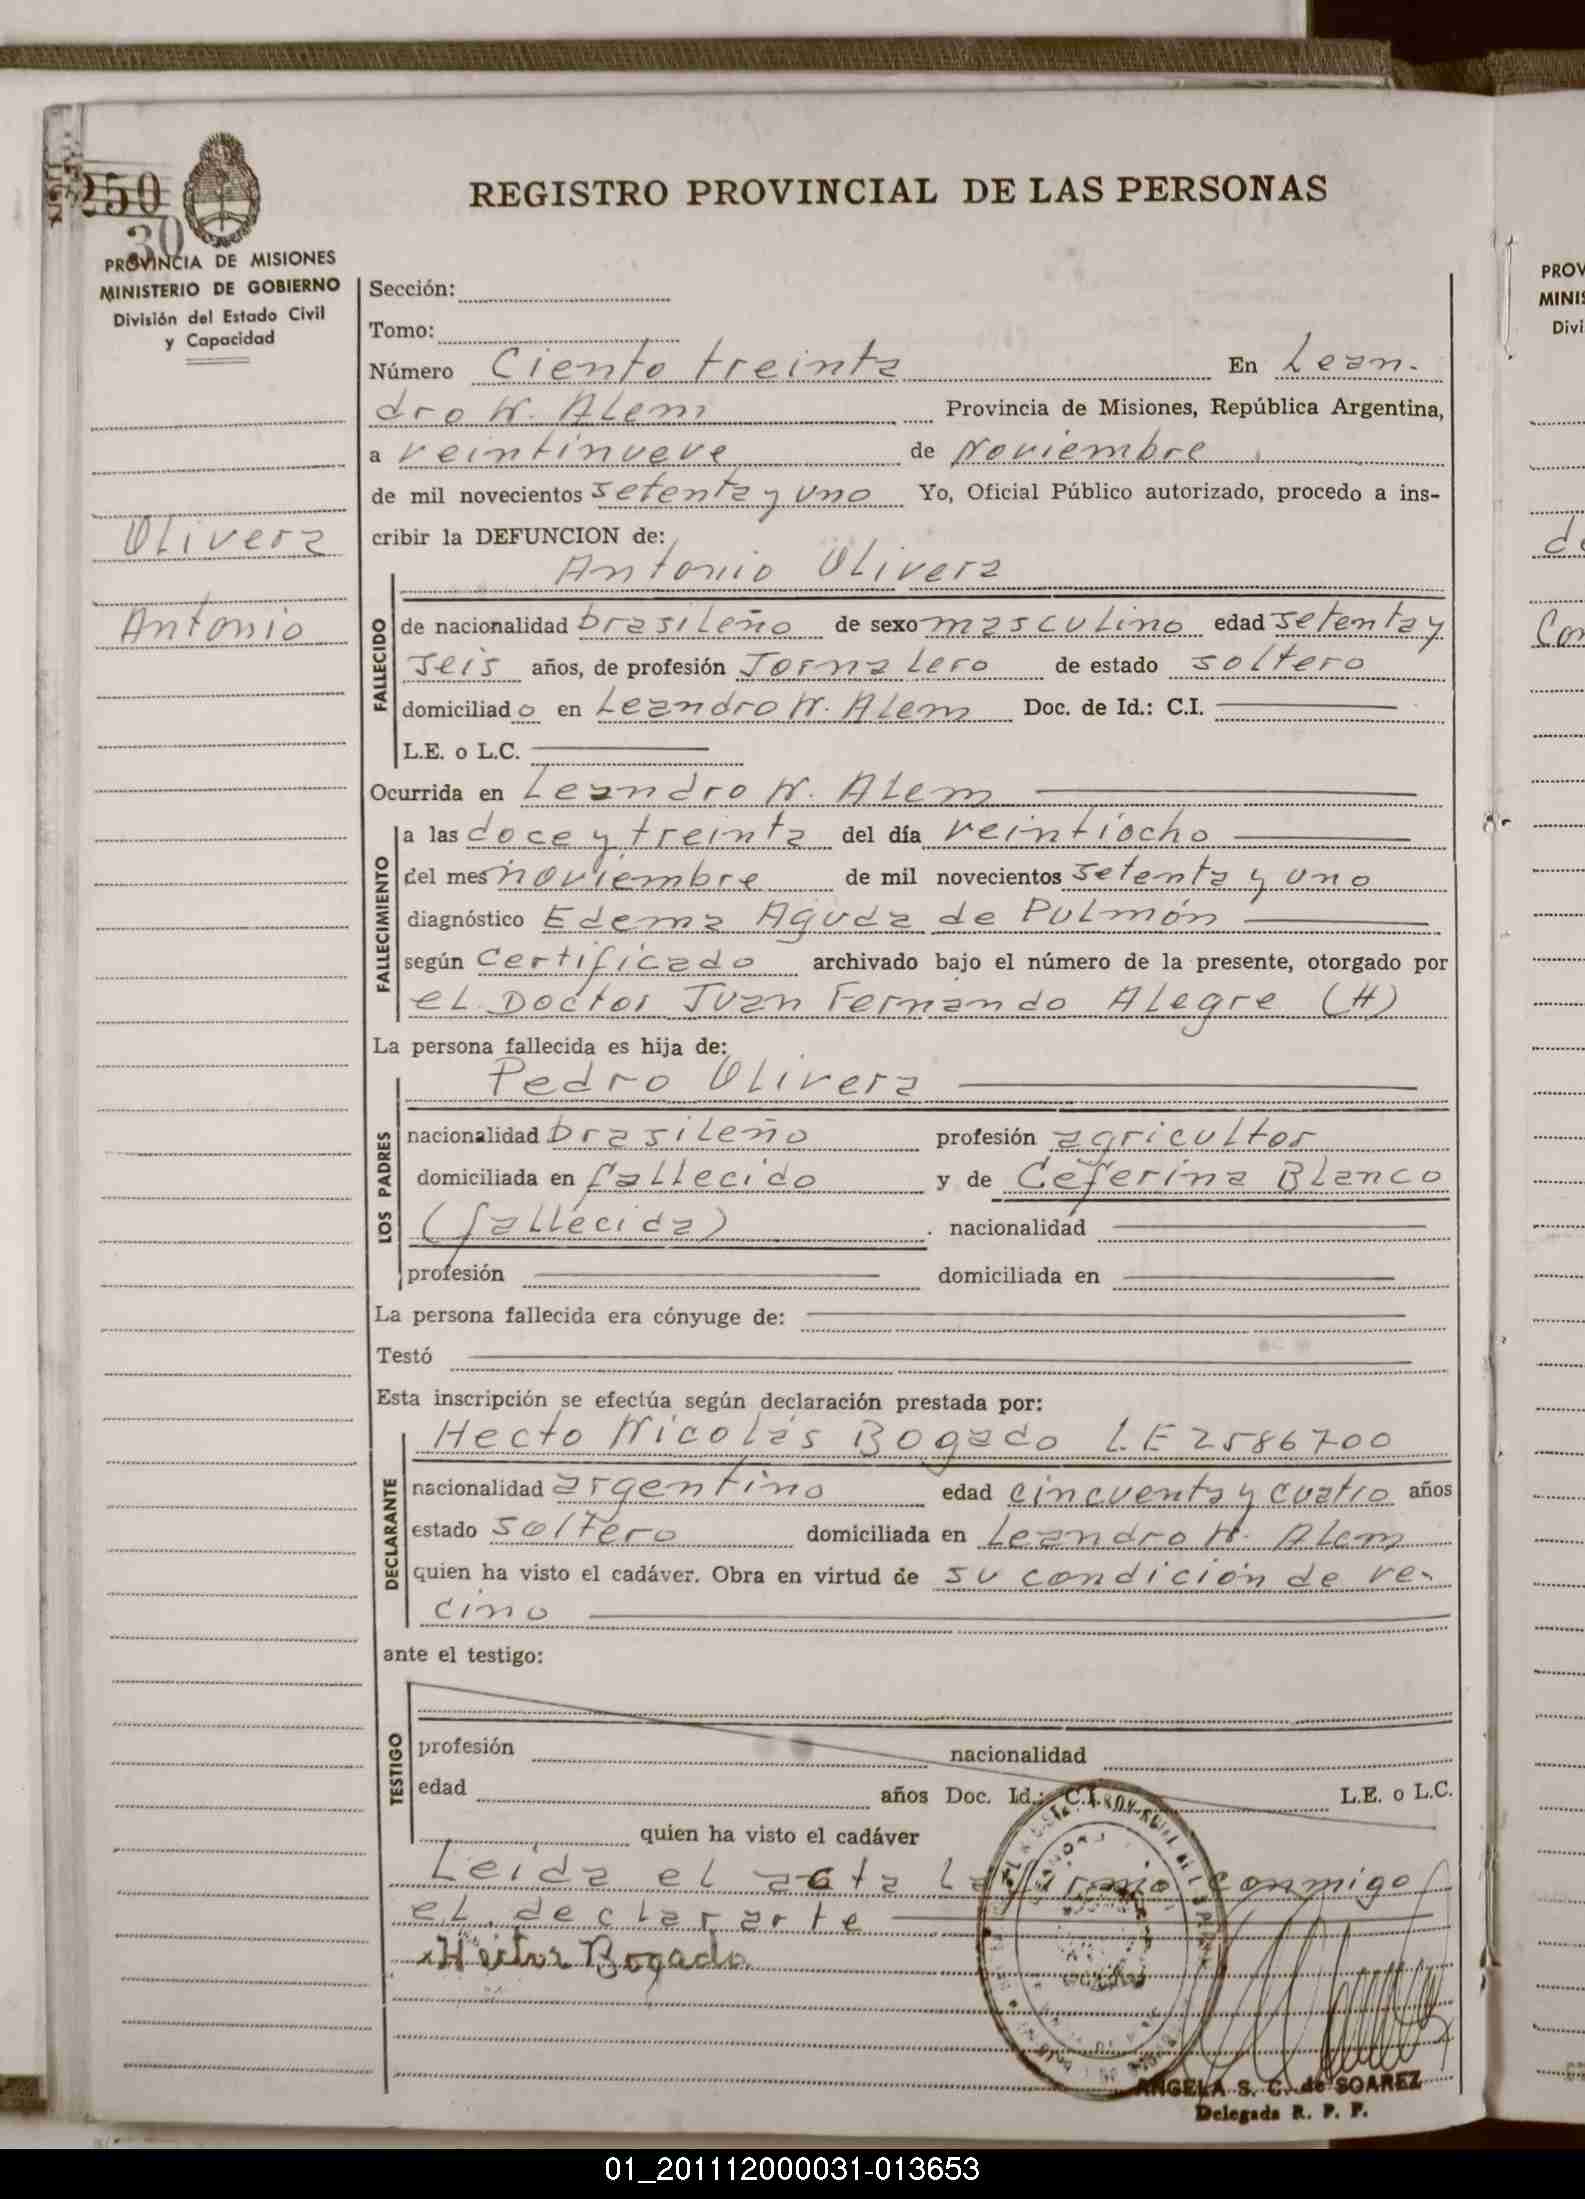 250
30
REGISTRO PROVINCIAL DE LAS PERSONAS
PROVINCIA DE MISIONES
MINISTERIO DE GOBIERNO
División del Estado Civil
y Capacidad
Olivera
Antonio
Sección:
Tomo:
Número Ciento treinta En Lean-
dro N. Alem Provincia de Misiones, República Argentina,
a veintinueve de Noviembre
de mil novecientos setenta y uno Yo, Oficial Público autorizado, procedo a ins-
cribir la DEFUNCION de:
Antonio Olivera
FALLECIDO
de nacionalidad brasileño de sexo masculino edad setenta y
seis años, de profesión Jornalero de estado soltero
domiciliado en Leandro N. Alem Doc. de Id.: C.I.
L.E. o L.C.
Ocurrida en Leandro N. Alem
FALLECIMIENTO
a las doce y treinta del día veintiocho
del mes noviembre de mil novecientos setenta y uno
diagnóstico Edema Aguda de Pulmón
según Certificado archivado bajo el número de la presente, otorgado por
el Doctor Juan Fernando Alegre (H)
La persona fallecida es hija de:
Pedro Olivera
LOS PADRES
nacionalidad brasileño profesión agricultor
domiciliada en fallecido y de Ceferina Blanco
(fallecida) nacionalidad
profesión domiciliada en
La persona fallecida era cónyuge de:
Testó
Esta inscripción se efectúa según declaración prestada por:
Hecto Nicolás Bogado L.E 2586700
DECLARANTE
nacionalidad argentino edad cincuenta y cuatro años
estado soltero domiciliada en Leandro N. Alem
quien ha visto el cadáver. Obra en virtud de su condición de ve-
cino
ante el testigo:
TESTIGO
profesión nacionalidad
edad años Doc. Id.: C.I. L.E. o L.C.
quien ha visto el cadáver
Leída el acta la firma conmigo
el declarante
Hector Bogado
ANGELA S. C. de SOAREZ
Delegada R. P. P.
PROV
MINIS
Divi
Con
01_201112000031-013653